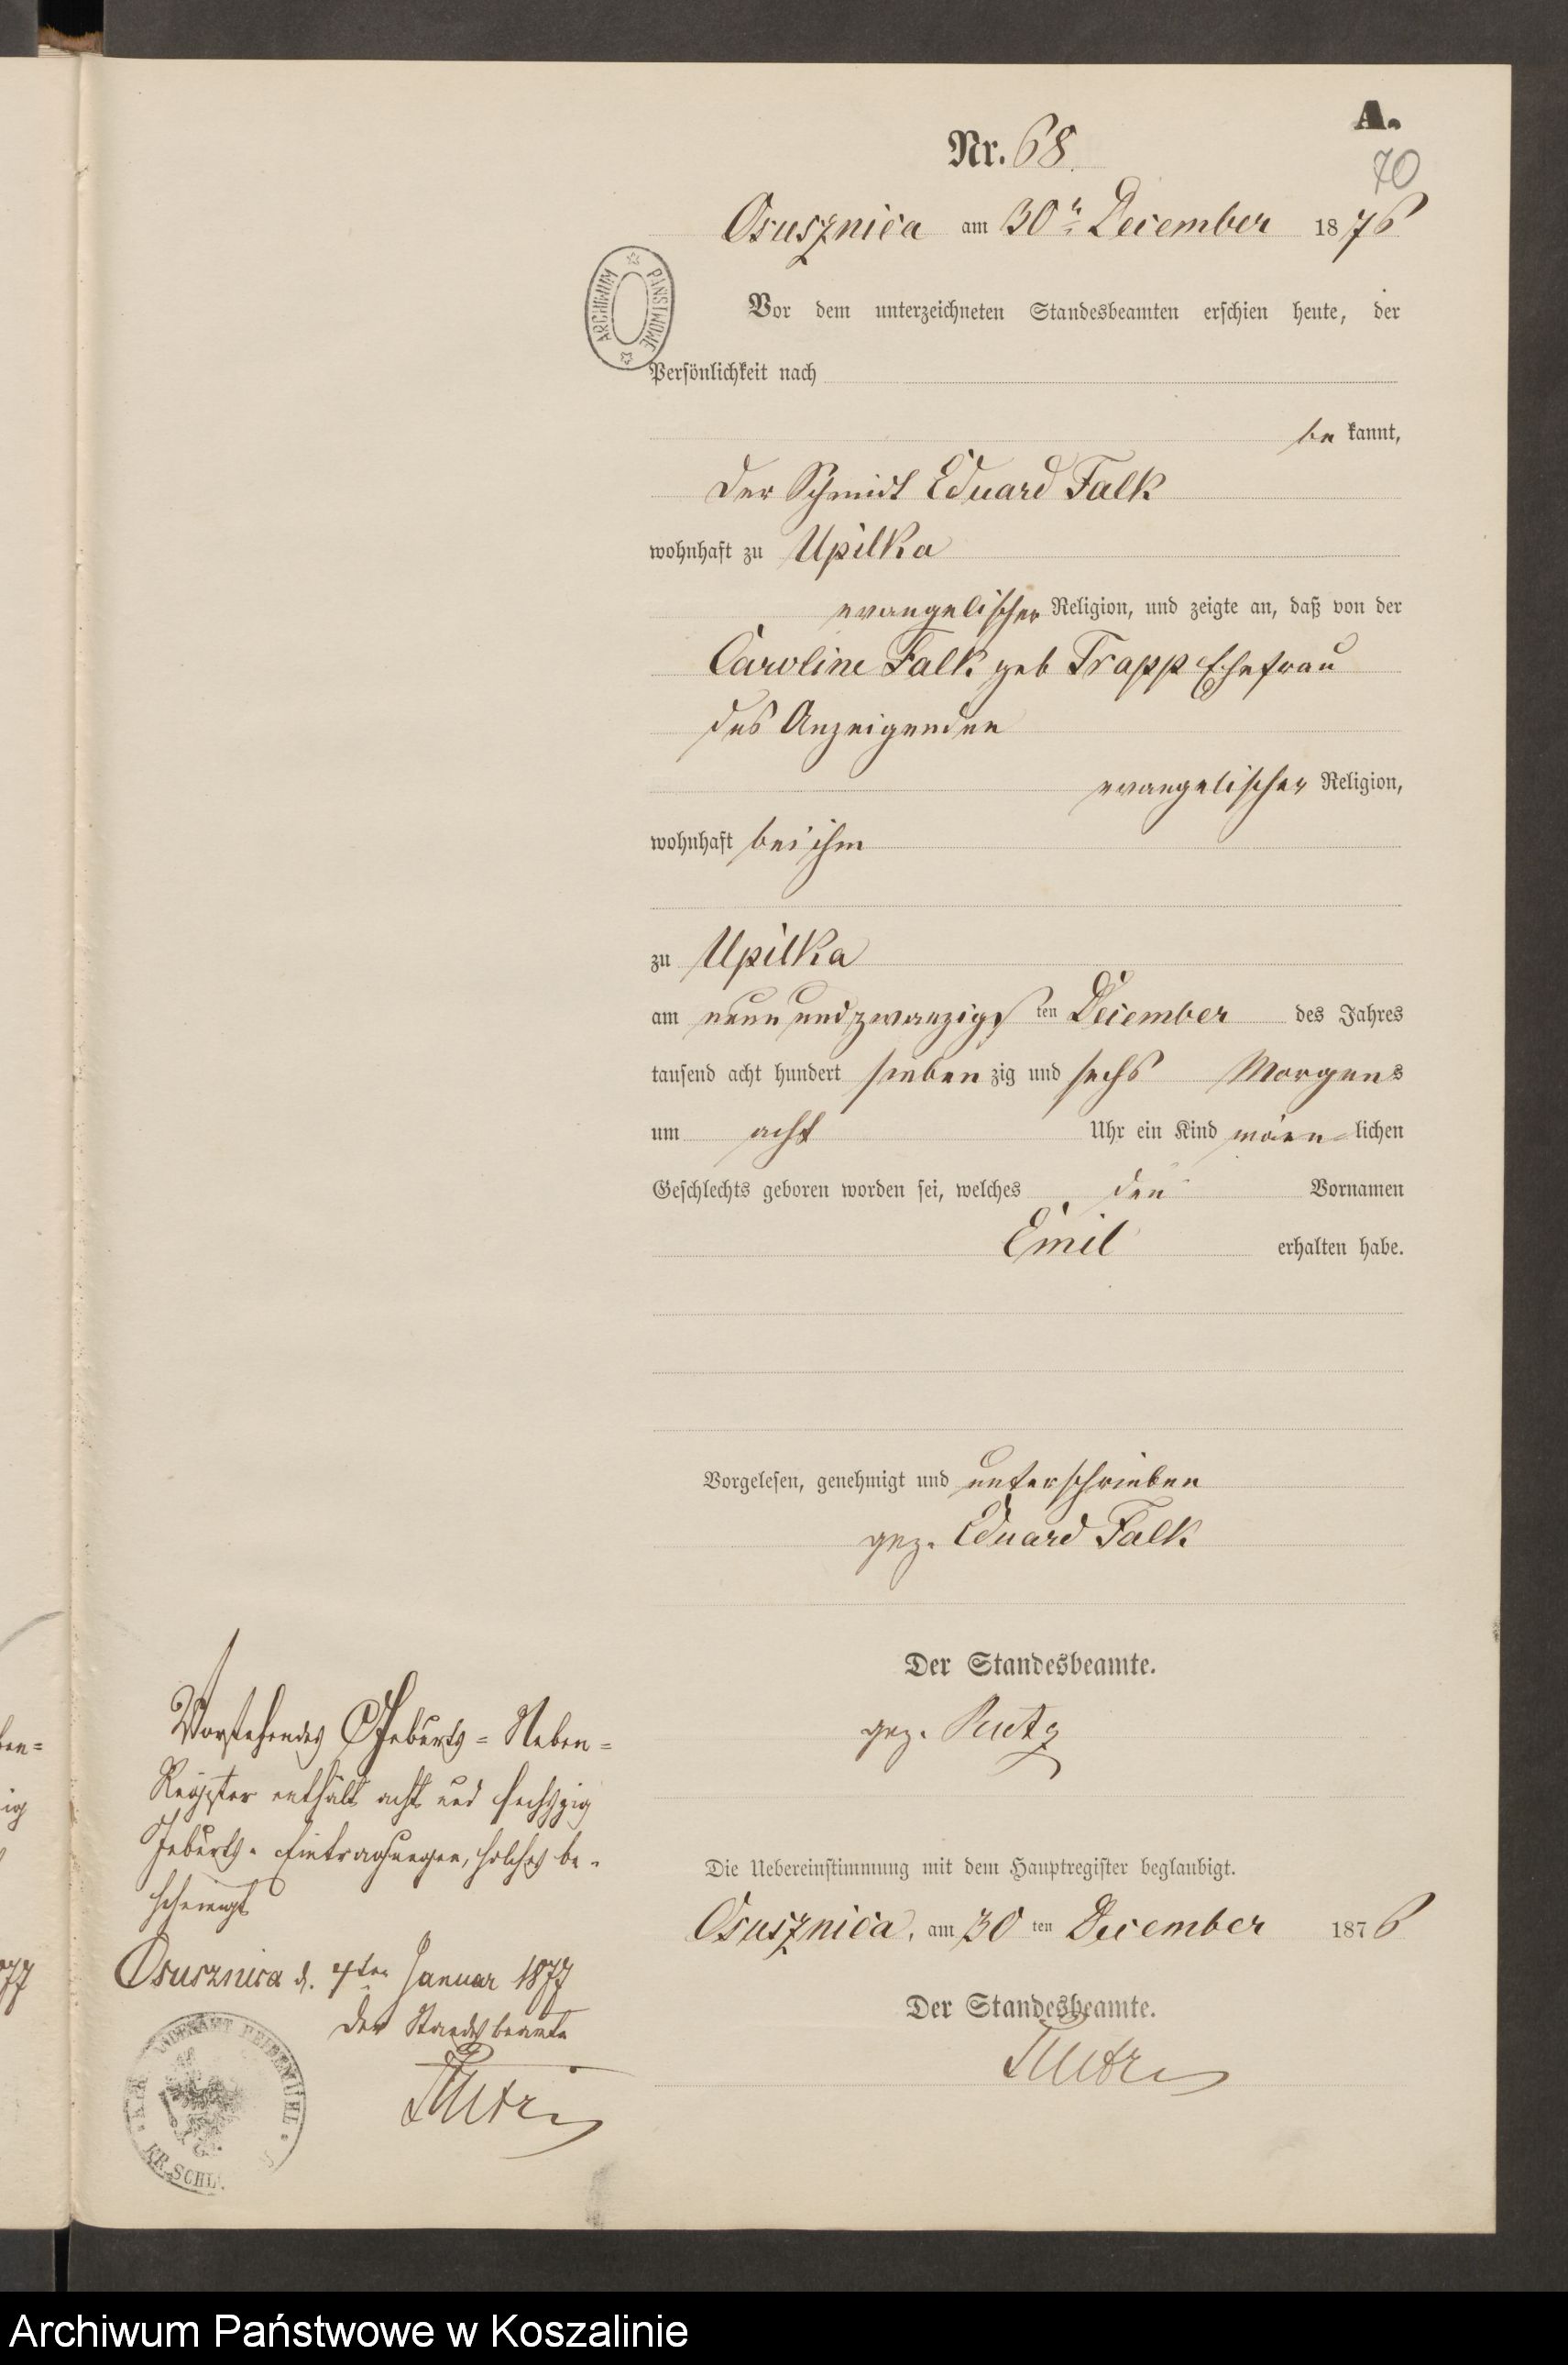 A.
Nr. 68.
70
Osusznica am 30n December 1876
Vor dem unterzeichneten Standesbeamten erschien heute, der
ARCHIWUM PAŃSTWOWE
Persönlichkeit nach
be kannt,
der Schmidt Eduard Falk
wohnhaft zu Upilka
evangelischer Religion, und zeigte an, daß von der
Caroline Falk geb Trapp Ehefrau
des Anzeigenden
evangelischer Religion,
wohnhaft bei ihm
zu Upilka
am neun und zwanzigs ten December des Jahres
tausend acht hundert sieben zig und sechs Morgens
um acht Uhr ein Kind män lichen
Geschlechts geboren worden sei, welches den Vornamen
Emil erhalten habe.
Vorgelesen, genehmigt und unterschrieben
gez. Eduard Falk
Der Standesbeamte.
gez.
Die Uebereinstimmung mit dem Hauptregister beglaubigt.
Osusznica, am 30 ten December 1876
Der Standesbeamte.
Vorstehendes Geburts-Neben-
Register enthält acht und sechszig
Geburts-Eintragungen, solches be-
scheinigt
Osusznica d. Januar 1877
Der Standesbeamte
KR. SCHL
ben=
ig
77
Archiwum Państwowe w Koszalinie